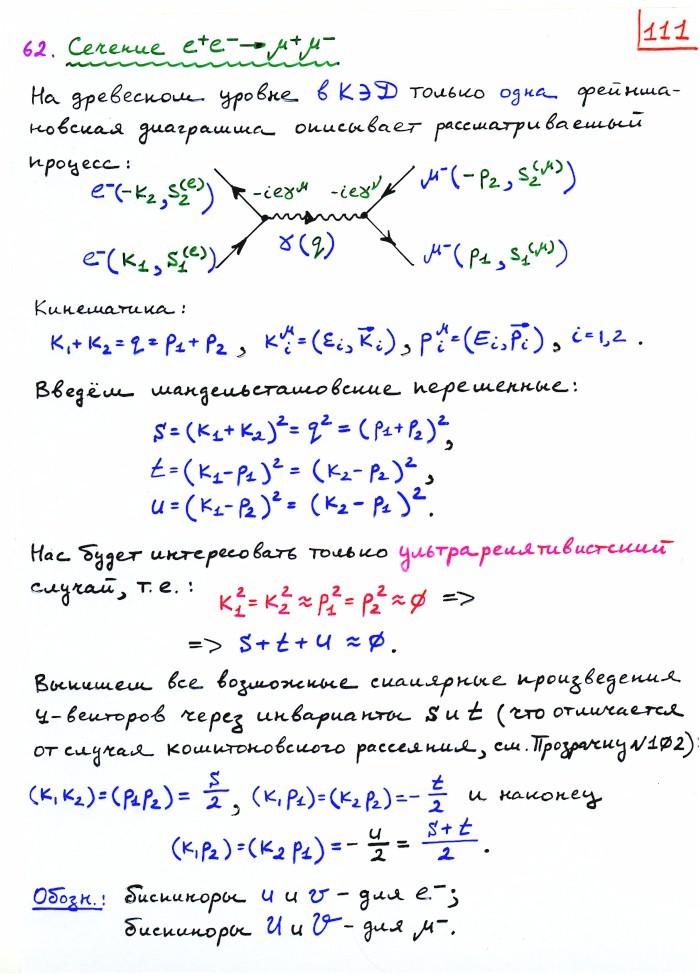 111
62. Сечение e⁺e⁻→μ⁺μ⁻
На древесном уровне в КЭД только одна фейнма-
новская диаграмма описывает рассматриваемый
процесс:
e⁻(-k₂, s₂⁽ᵉ⁾) -ieγ^μ -ieγ^ν μ⁻(-p₂, s₂^(μ))
γ(q)
e⁻(k₁, s₁⁽ᵉ⁾) μ⁻(p₁, s₁^(μ))
Кинематика:
k₁+k₂=q=p₁+p₂, k_i^μ=(ε_i, \vec{k}_i), p_i^μ=(E_i, \vec{p}_i), i=1,2.
Введём мандельстамовские переменные:
s=(k₁+k₂)²=q²=(p₁+p₂)²,
t=(k₁-p₁)²=(k₂-p₂)²,
u=(k₁-p₂)²=(k₂-p₁)².
Нас будет интересовать только ультрарелятивистский
случай, т.е.: k₁²=k₂²≈p₁²=p₂²≈0 =>
=> s+t+u≈0.
Выпишем все возможные скалярные произведения
4-векторов через инварианты s и t (что отличается
от случая комптоновского рассеяния, см. Прозрачку N102):
(k₁k₂)=(p₁p₂)=s/2, (k₁p₁)=(k₂p₂)=-t/2 и наконец
(k₁p₂)=(k₂p₁)=-u/2=(s+t)/2.
Обозн.: биспиноры u и v - для e⁻;
биспиноры U и V - для μ⁻.